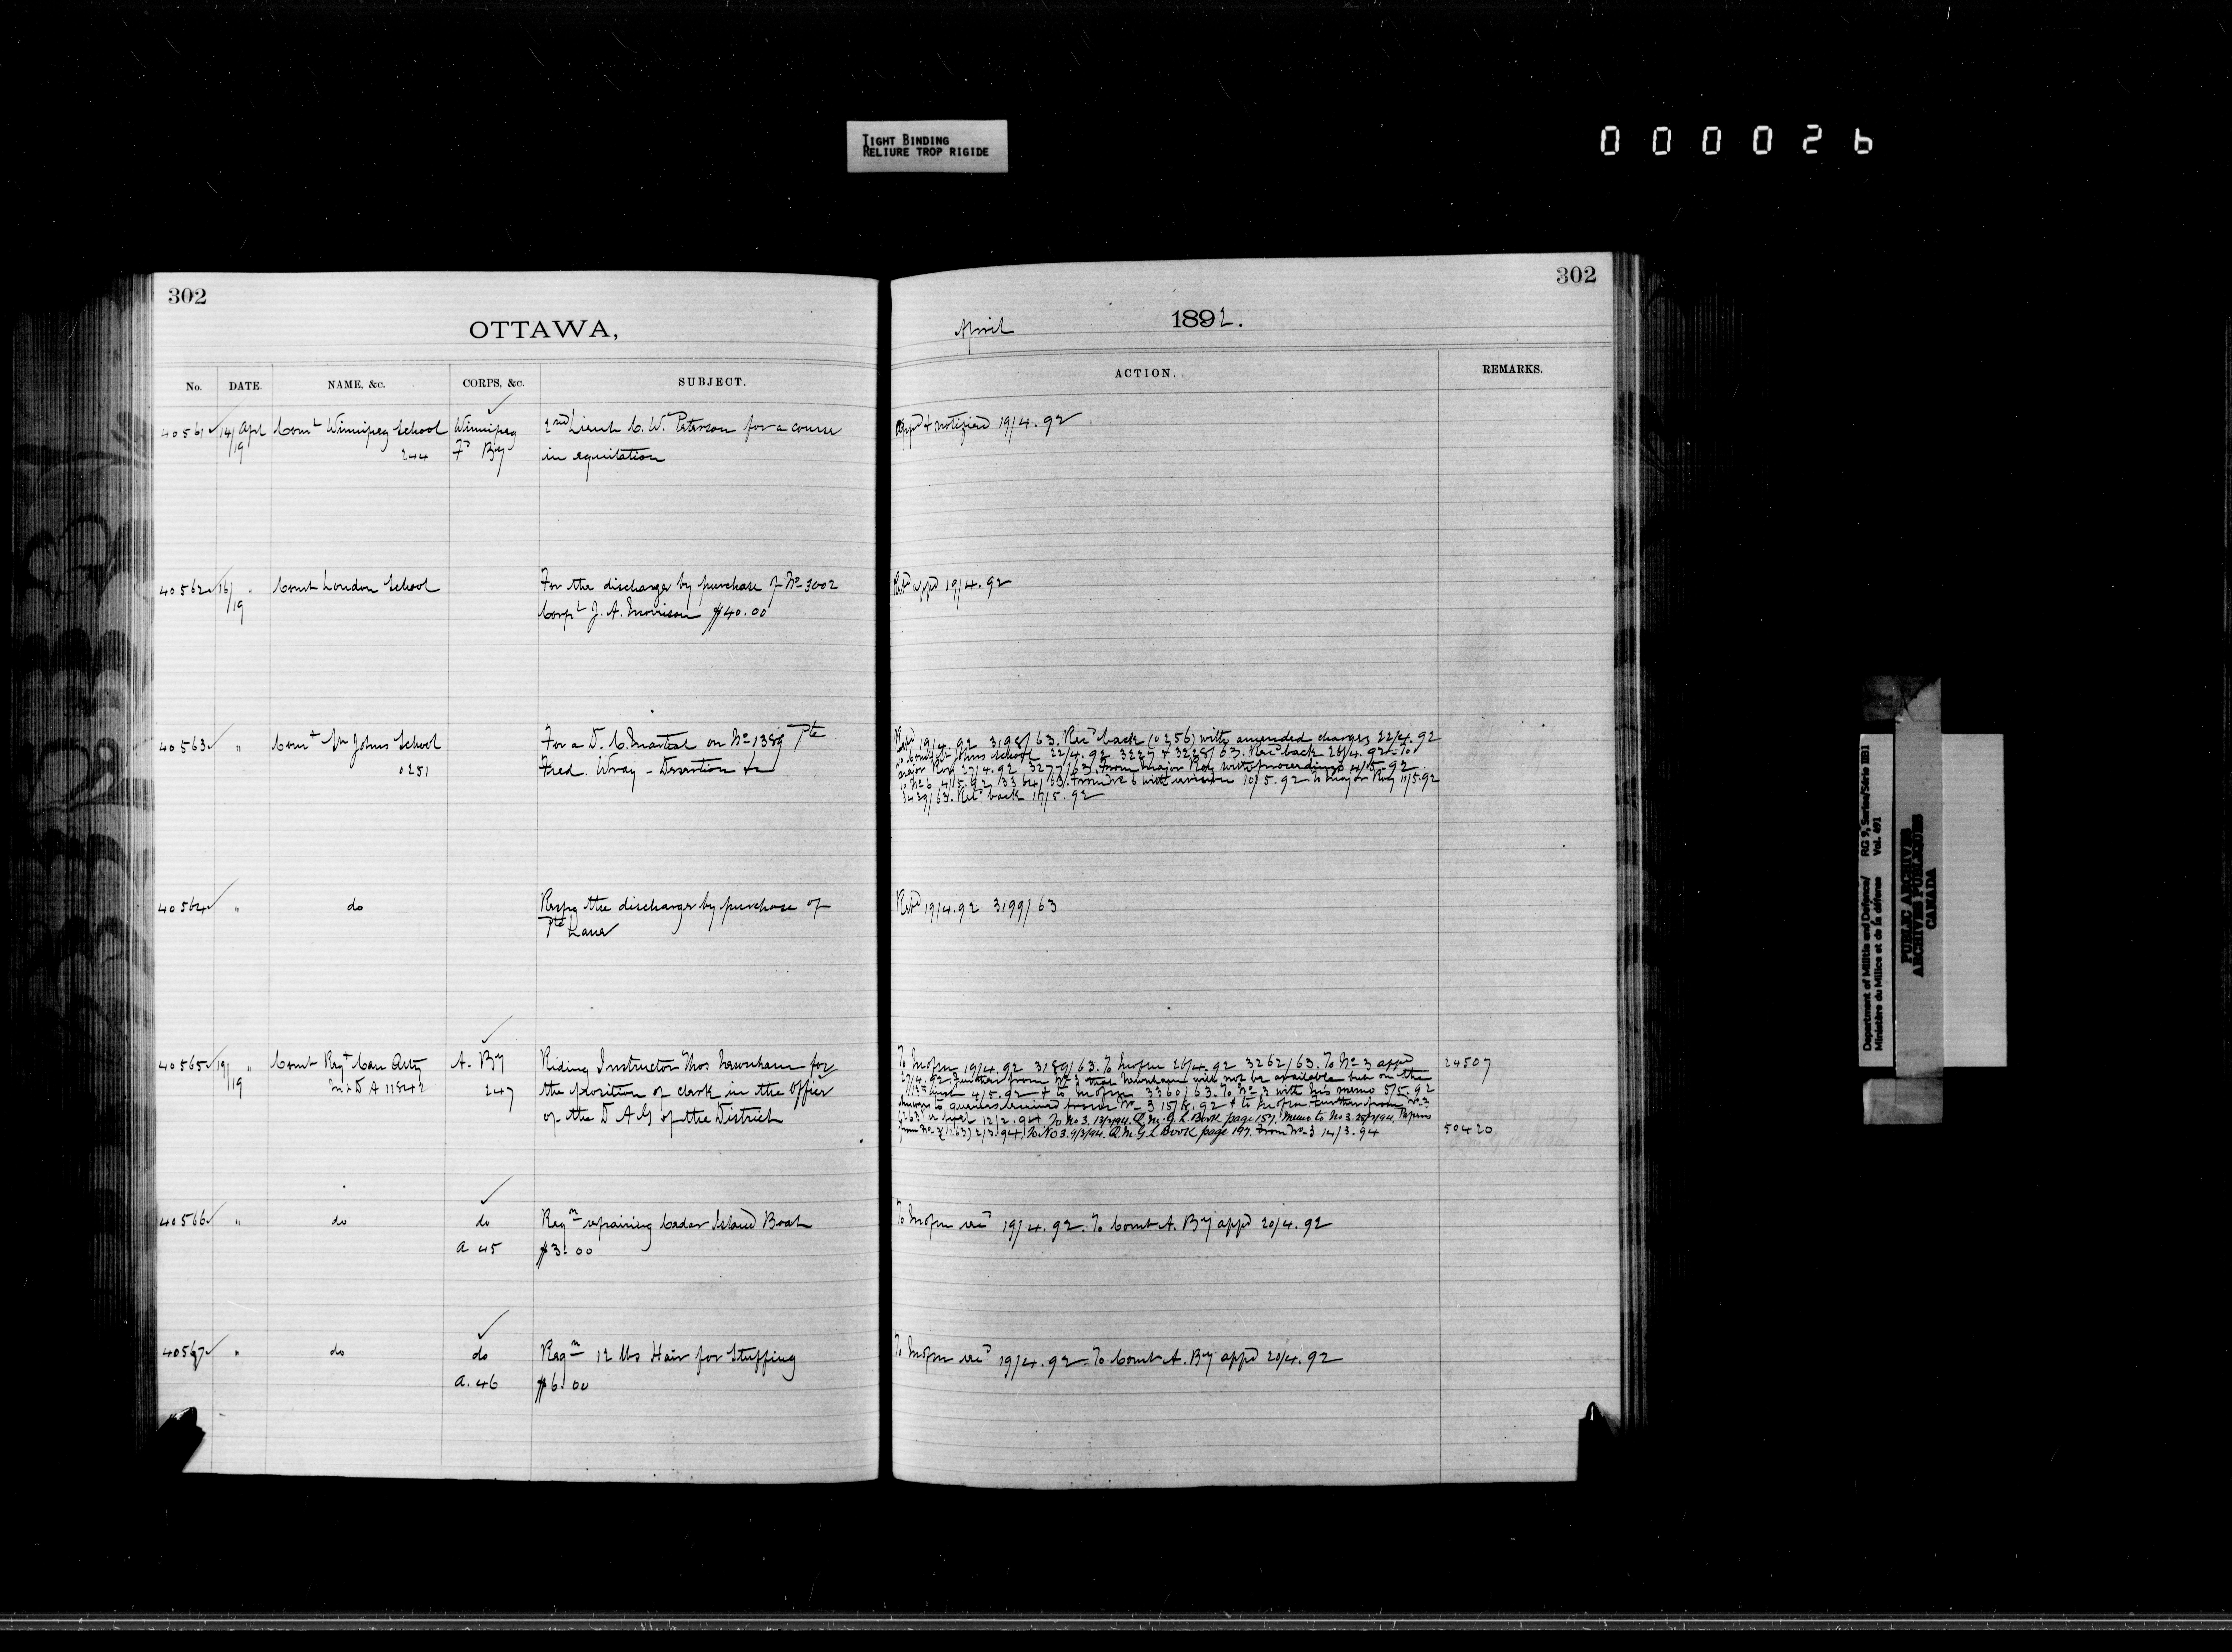 TIGHT BINDING
RELIURE TROP RIGIDE
0 0 0 0 2 6
302
OTTAWA,
No. DATE. NAME, &c. CORPS, &c. SUBJECT.
40561 14/19 Apl Comt Winnipeg School 244 Winnipeg Fd By 2nd Lieut C. W. Peterson for a course
in equitation
40562 16/19 " Comt London School For the discharge by purchase of No 3002
Corpl J. A. Morrison $40.00
40563 " Comt St Johns School 0251 For a D. C. Martial on No 1389 Pte
Fred. Wray - Desertion &c
40564 " do Respg the discharge by purchase of
Pte
40565 19/19 " Comt Regt Can Arty A. By 247 Riding Instructor Thos Newnham for
the position of clerk in the Office
of the D A G of the District
40566 " do do A 45 Reqn repairing Cedar Island Boat
$3.00
40567 " do do A. 46 Reqn 12 lbs Hair for Stuffing
$6.00
302
April 1892.
ACTION. REMARKS.
Appd & notified 19/4.92
Retd appd 19/4.92
Retd 19/4.92 3198/63. Recd back (0256) with amended charges 22/4.92
To Comt St Johns School 22/4.92 3227 & 3228/63. Recd back 26/4.92. To
Major Roy 27/4.92 3277/63. From Major Roy with proceedings 4/5.92.
To No 6 4/5.92 3364/63. From No 6 with 10/5.92 To Major Roy 11/5.92
3429/63. Retd back 17/5.92
Retd 19/4.92 3199/63
19/4.92 3189/63. To 26/4.92 3262/63. To No 3 appd 24507
27/4.92. Further from No 3 that Newnham will not be available but on the
4/5.92 & to 3360/63. To No 3 with his memo 5/5.92
to queries received from No 3 & to Further from No 3
12/2.94 To No 3. 13/2/94. Q.M.G.L. Book page 157. Memo to No 3. Papers
from No 3 2/3.94. To No 3. 9/3/94. Q.M.G.L. Book page 197. From No 3 14/3.94 50420
19/4.92. To Comt A. By appd 20/4.92
19/4.92. To Comt A. By appd 20/4.92
Department of Militia and Defence/ RG 9, Series/Série IIB1
Ministère du Milice et de la défense Vol. 491
PUBLIC ARCHIVES
ARCHIVES PUBLIQUES
CANADA